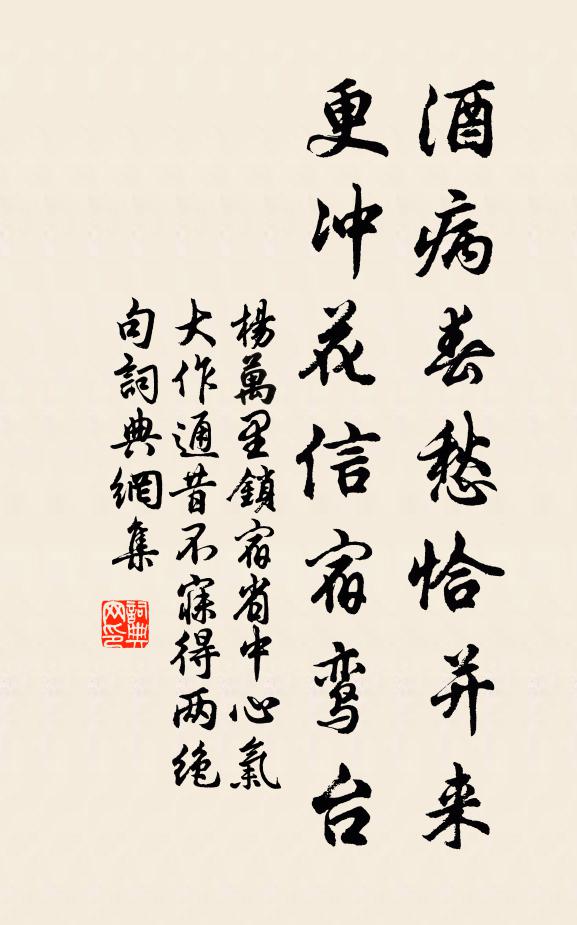 酒病春愁恰并来
更冲花信宿鸾台
楊萬里鎖宿省中心氣
大作通昔不寐得两绝
句詞典網集
詞典
网印